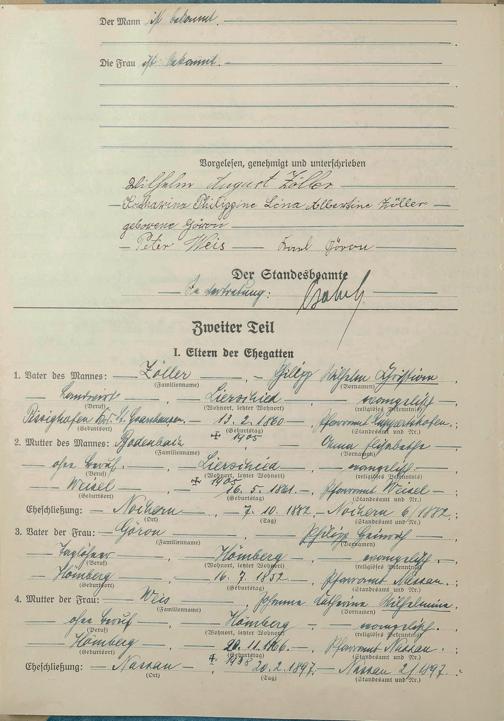 Der Mann ist bekannt.
Die Frau ist bekannt.
Vorgelesen, genehmigt und unterschrieben
Wilhelm August Zöller
Katharina Philippine Lina Albertine Zöller
geborene Göron
Peter Weis Karl Göron
Der Standesbeamte
In Vertretung:
Zweiter Teil
I. Eltern der Ehegatten
1. Vater des Mannes: Zöller, Wilhelm Christian
(Familienname) (Vornamen)
Landwirt, Lierschied, evangelisch
(Beruf) (Wohnort, letzter Wohnort) (religiöses Bekenntnis)
St. Goarshausen, 13. 2. 1860, Pfarramt
(Geburtsort) (Geburtstag) (Standesamt und Nr.)
+ 1905
2. Mutter des Mannes: Anna Elisabethe
(Familienname) (Vornamen)
ohne Beruf, Lierschied, evangelisch
(Beruf) (Wohnort, letzter Wohnort) (religiöses Bekenntnis)
Weisel, 16. 5. 1861, Pfarramt Weisel;
(Geburtsort) (Geburtstag) (Standesamt und Nr.)
Eheschließung: Nochern, 7. 10. 1882, Nochern 6/1882
(Ort) (Tag) (Standesamt und Nr.)
3. Vater der Frau: Göron, Philipp Heinrich
(Familienname) (Vornamen)
Taglöhner, Hömberg, evangelisch
(Beruf) (Wohnort, letzter Wohnort) (religiöses Bekenntnis)
Hömberg, 16. 7. 1852, Pfarramt Nassau;
(Geburtsort) (Geburtstag) (Standesamt und Nr.)
4. Mutter der Frau: Weis, Katharina Wilhelmina
(Familienname) (Vornamen)
ohne Beruf, Hömberg, evangelisch
(Beruf) (Wohnort, letzter Wohnort) (religiöses Bekenntnis)
Hömberg, 20. 11. 1866, Pfarramt Nassau;
(Geburtsort) (Geburtstag) (Standesamt und Nr.)
Eheschließung: Nassau, 20. 2. 1897, Nassau 2/1897
(Ort) (Tag) (Standesamt und Nr.)